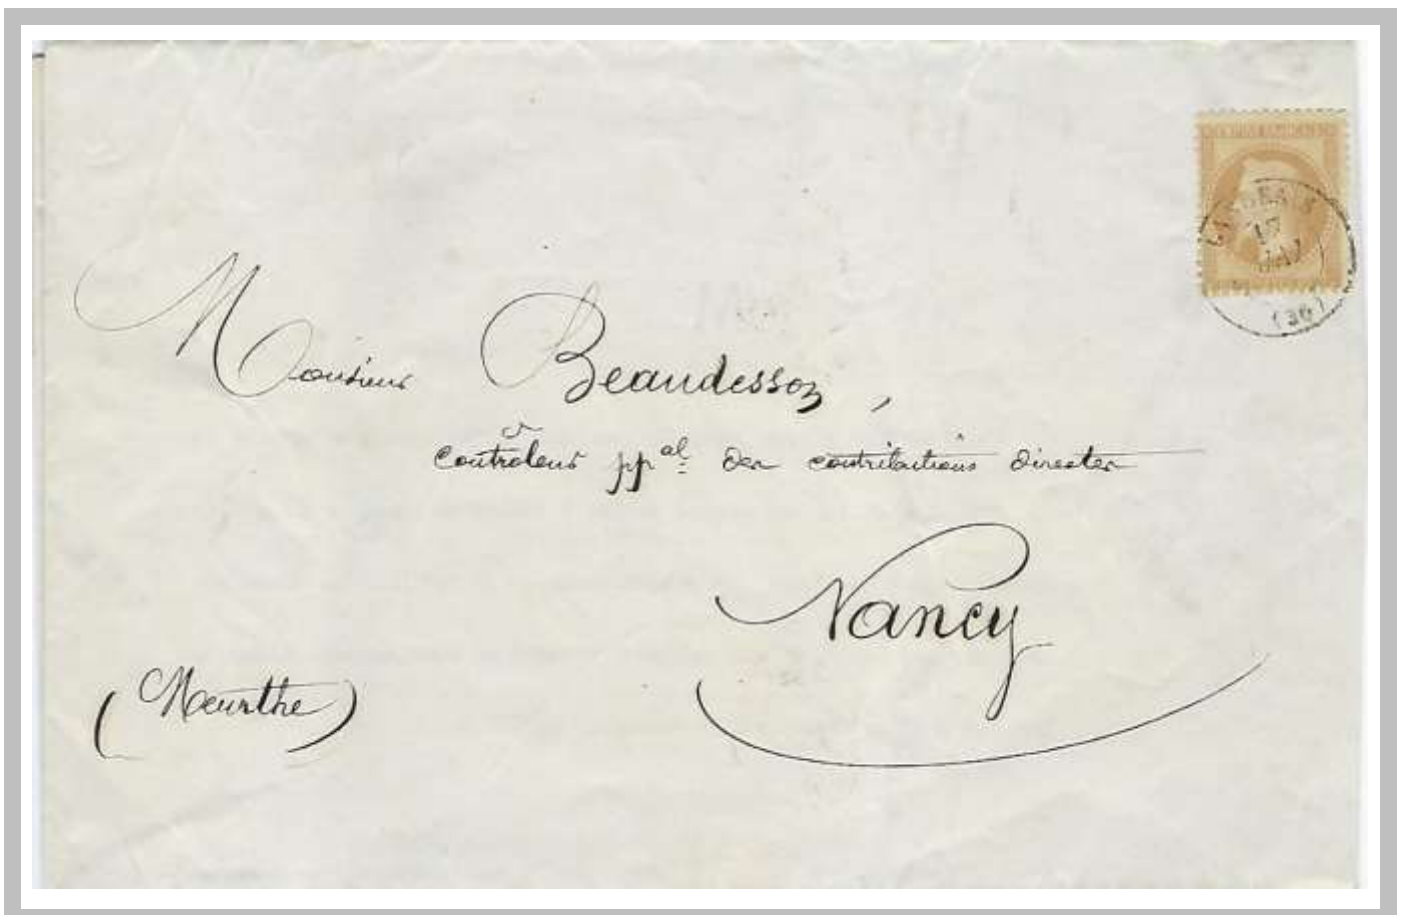 (36)
Monsieur Beaudesson,
controleur ppal des contributions directes
Nancy
(Meurthe)